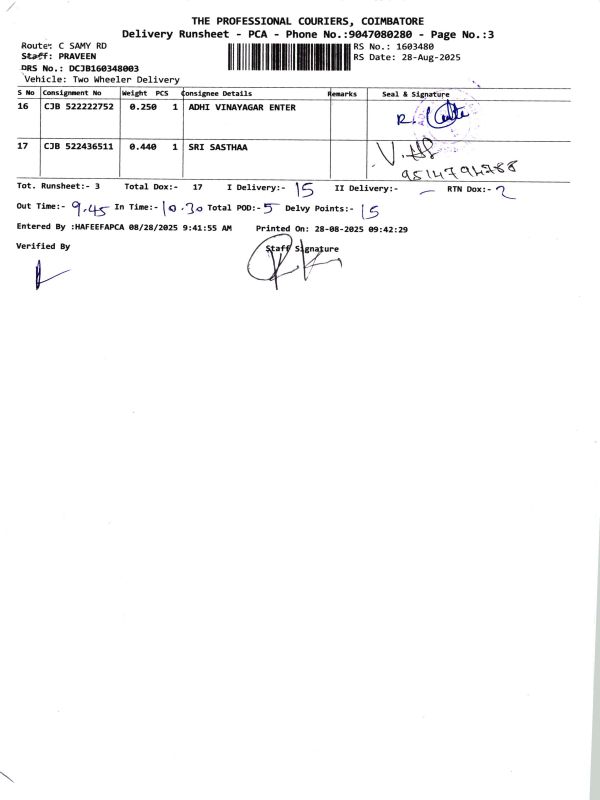 THE PROFESSIONAL COURIERS, COIMBATORE
Delivery Runsheet - PCA - Phone No.:9047080280 - Page No.:3
Route: C SAMY RD RS No.: 1603480
Staff: PRAVEEN RS Date: 28-Aug-2025
DRS No.: DCJB160348003
Vehicle: Two Wheeler Delivery
S No Consignment No Weight PCS Consignee Details Remarks Seal & Signature
16 CJB 522222752 0.250 1 ADHI VINAYAGAR ENTER
17 CJB 522436511 0.440 1 SRI SASTHAA
9514794788
Tot. Runsheet:- 3 Total Dox:- 17 I Delivery:- 15 II Delivery:- — RTN Dox:- 2
Out Time:- 9.45 In Time:- 10.30 Total POD:- 5 Delvy Points:- 15
Entered By :HAFEEFAPCA 08/28/2025 9:41:55 AM Printed On: 28-08-2025 09:42:29
Verified By Staff Signature